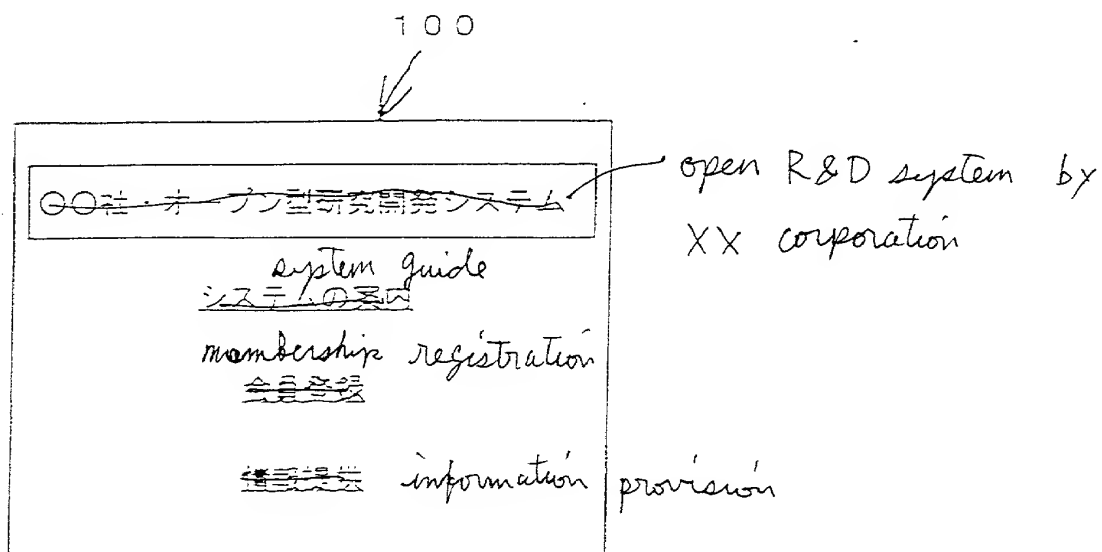 100
○○社・オープン型研究開発システム
open R&D system by
XX corporation
system guide
システムの案内
membership registration
会員登録
情報提供 information provision